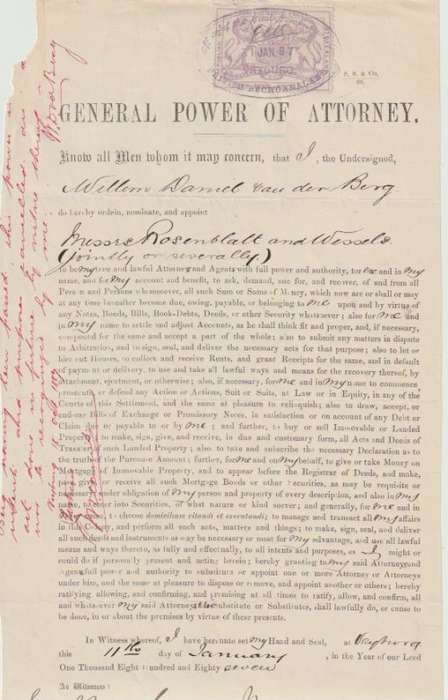 JAN. 87
BRITISH BECHUANALAND
GENERAL POWER OF ATTORNEY.
Know all Men whom it may concern, that I, the Undersigned,
Willem Daniel van den Berg
do hereby ordain, nominate, and appoint
Messrs Rosenblatt and Wessels
(jointly or severally)
to be my true and lawful Attorneys and Agents with full power and authority, for me and in my
name, and for my account and benefit, to ask, demand, sue for, and recover, of and from all
Person and Persons whomsoever, all such Sum or Sums of Money, which now are or shall or may
at any time hereafter become due, owing, payable, or belonging to me upon and by virtue of
any Notes, Bonds, Bills, Book-Debts, Deeds, or other Security whatsoever; also for me and
in my name to settle and adjust Accounts, as he shall think fit and proper, and, if necessary,
compound for the same and accept a part of the whole; also to submit any matters in dispute
to Arbitration, and to sign, seal, and deliver the necessary acts for that purpose; also to let or
hire out Houses, to collect and receive Rents, and grant Receipts for the same, and in default
of payment or delivery, to use and take all lawful ways and means for the recovery thereof, by
attachment, ejectment, or otherwise; also, if necessary, for me and in my name to commence
prosecute or defend any Action or Actions, Suit or Suits, at Law or in Equity, in any of the
Courts of and the same at pleasure to relinquish; also to draw, accept, or
endorse Bills of Exchange or Promissory Notes, in satisfaction or on account of any Debt or
Claim due or payable to or by me; and further, to buy or sell Immovable or Landed
Property; to make, sign, give, and receive, in due and customary form, all Acts and Deeds of
Transfer of such Landed Property; also to take and subscribe the necessary Declaration as to
the truth of the Purchase Amount; further, for me and on my behalf, to give or take Money on
Mortgage of Immovable Property, and to appear before the Registrar of Deeds, and make,
pass, or receive all such Mortgage Bonds or other Securities, as may be requisite or
necessary under obligation of my person and property of every description, and also in my
name, to enter into Securities, of what nature or kind soever; and generally, for me and in
my name to choose domicilium citandi et executandi, to manage and transact all my affairs
in that and perform all such acts, matters and things; to make, sign, seal, and deliver
all such deeds and instruments as may be necessary or most for my advantage, and use all lawful
means and ways thereto, as fully and effectually, to all intents and purposes, as I might or
could do if personally present and acting therein; hereby granting to my said Attorney and
Agents full power and authority to substitute or appoint one or more Attorney or Attorneys
under him, and the same at pleasure to displace or remove, and appoint another or others; hereby
ratifying, allowing, and confirming, and promising at all times to ratify, allow, and confirm, all
and whatsoever my said Attorneys or Substitute or Substitutes, shall lawfully do, or cause to
be done, in or about the premises by virtue of these presents.
In Witness whereof, I have hereunto set my Hand and Seal, at
this 11th day of January in the Year of our Lord
One Thousand Eight Hundred and Eighty seven
As Witness: